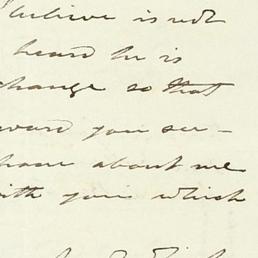 believe is not
heard he is
change so that
you see -
have about me
with you which